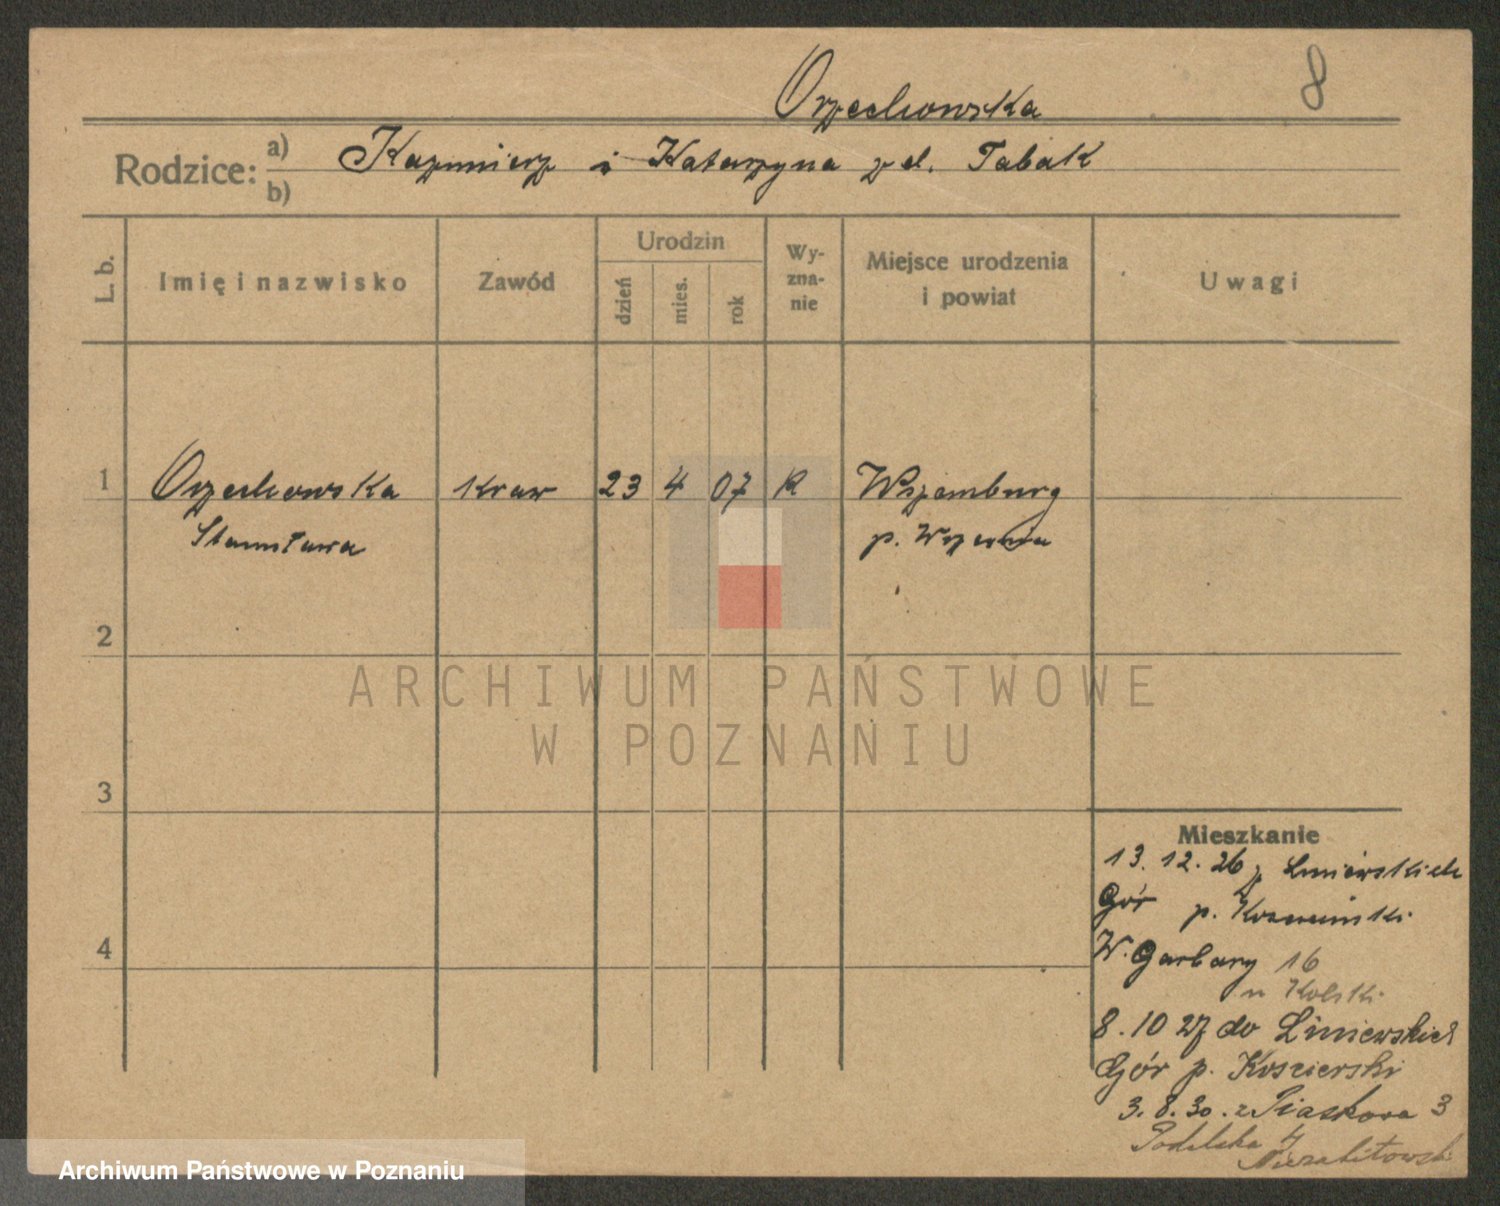 Orzechowska
8
Rodzice: a) Kazimierz i Katarzyna z d. Tabak
b)
L. b.
Imię i nazwisko
Zawód
Urodzin
dzień
mies.
rok
Wy-
zna-
nie
Miejsce urodzenia
i powiat
Uwagi
1 Orzechowska Kraw 23 4 07 R Wszemburg
Stanisława p. Września
2
3
4
Mieszkanie
13. 12. 26 z Liniewskich
Gór p.
W. Garbary 16
u Kolski
8. 10 27 do Liniewskich
Gór p. Koszierski
3. 8. 30. z Piaskowa 3
ARCHIWUM PAŃSTWOWE
W POZNANIU
Archiwum Państwowe w Poznaniu